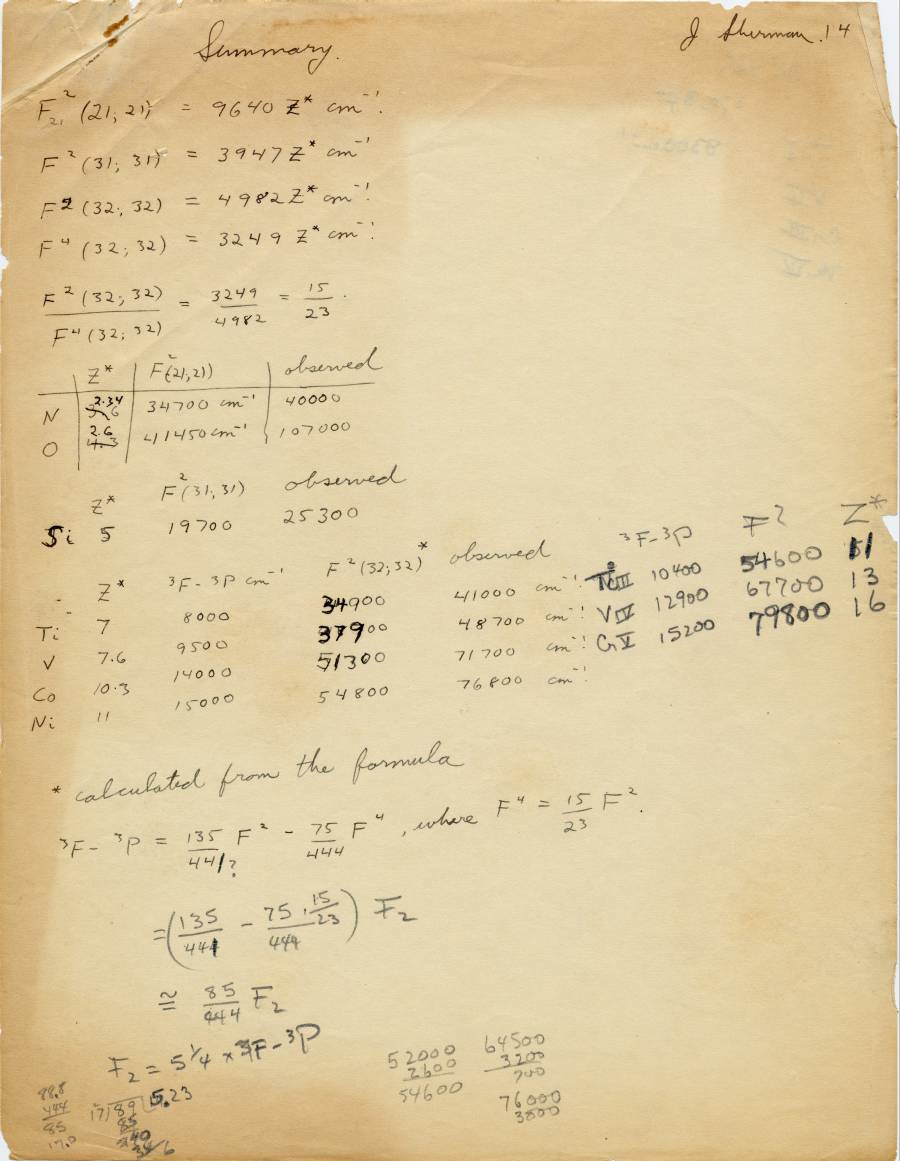 Summary.
J Sherman. 14
F²₂₁ (21; 21) = 9640 Z* cm⁻¹.
F² (31; 31) = 3947 Z* cm⁻¹
F² (32; 32) = 4982 Z* cm⁻¹.
F⁴ (32; 32) = 3249 Z* cm⁻¹.
F² (32; 32) / F⁴ (32; 32) = 3249 / 4982 = 15 / 23 .
Z* F²(21; 21) observed
N 2.34 34700 cm⁻¹ 40000
O 2.6 4.3 41450 cm⁻¹ 107000
Z* F²(31; 31) observed
Si 5 19700 25300
Z* ³F - ³P cm⁻¹ F² (32; 32)* observed
Ti 7 8000 34900 41000 cm⁻¹.
V 7.6 9500 37900 48700 cm⁻¹.
Co 10.3 14000 51300 71700 cm⁻¹.
Ni 11 15000 54800 76800 cm⁻¹.
³F - ³P F² Z*
10400 54600 11
V IV 12900 67700 13
Cr V 15200 79800 16
* calculated from the formula
³F - ³P = 135/441? F² - 75/444 F⁴ , where F⁴ = 15/23 F².
= (135/441 - 75 · 15/23 / 444) F₂
≅ 85/444 F₂
F₂ = 5 1/4 × ³F - ³P
88.8
444
85
17.0
17 | 89 | 5.23
85
40
34 / 6
52000
2600
54600
64500
3200
700
76000
3800